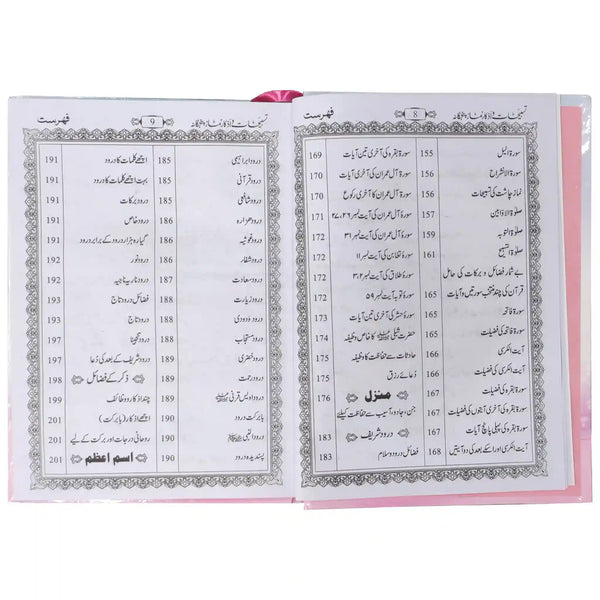 تسبیحات و اذکار نماز پنجگانہ
8
فہرست
سورۃ اللیل 155
سورۃ الانشراح 156
نماز چاشت کی تسبیحات 156
صلوٰۃ الاوابین 157
صلوٰۃ التوبہ 159
صلوٰۃ التسبیح 161
بے شمار فضائل و برکات کی حامل
قرآن کی چند منتخب سورتیں و آیات 165
سورۃ فاتحہ 165
سورۃ فاتحہ کی فضیلت 165
آیت الکرسی 166
سورۃ بقرہ کی فضیلت 167
سورۃ بقرہ کی آخری آیتوں کی فضیلت 167
سورۃ بقرہ کی پہلی پانچ آیات 167
آیت الکرسی اور اسکے بعد کی دو آیتیں 168
سورۃ بقرہ کی آخری تین آیات 169
سورۃ آل عمران کی آخری تین آیات 170
سورۃ آل عمران کا آخری رکوع 170
سورۃ آل عمران کی آیت نمبر ۲۶، ۲۷ 171
سورۃ آل عمران کی آیت نمبر ۳۱ 172
سورۃ تغابن کی آیت نمبر ۱۱ 172
سورۃ طلاق کی آیت نمبر ۳،۲ 172
سورۃ توبہ آیت نمبر ۵۹ 172
سورۃ حشر کی آخری تین آیات 173
حضرت شبلی کا خاص وظیفہ 174
حادثات سے حفاظت کا وظیفہ 175
دُعائے رزق 175
منزل 176
جن، جادو، آسیب سے حفاظت کیلئے
درود شریف 183
فضائل درود و سلام 183
تسبیحات و اذکار نماز پنجگانہ
9
فہرست
درود ابراہیمی 185
درود قرآنی 185
درود شافعی 185
درود ھزارہ 186
درود غوثیہ 186
درود شفاء 186
درود سعادت 187
درود زیارت 188
درود دوودی 188
درود مستجاب 188
درود خضری 189
درود رحمت 189
درود اویس قرنی 189
بابرکت درود 190
درود النبی ﷺ 190
پسندیدہ درود 190
اچھے کلمات کا درود 191
بہت اچھے کلمات کا درود 191
درود برکات 191
درود خاص 191
گیارہ ہزار درود کے برابر درود 191
درود نور 192
درود ناریہ ناجیہ 192
فضائل درود تاج 193
درود تاج 193
درود تنجینا 197
درود شریف کے بعد کی دُعا 197
ذکر کے فضائل 198
چند اذکار و وظائف 199
اچھے اذکار (بابرکت) 201
روحانی درجات اور برکت کے لیے 201
اسم اعظم 201